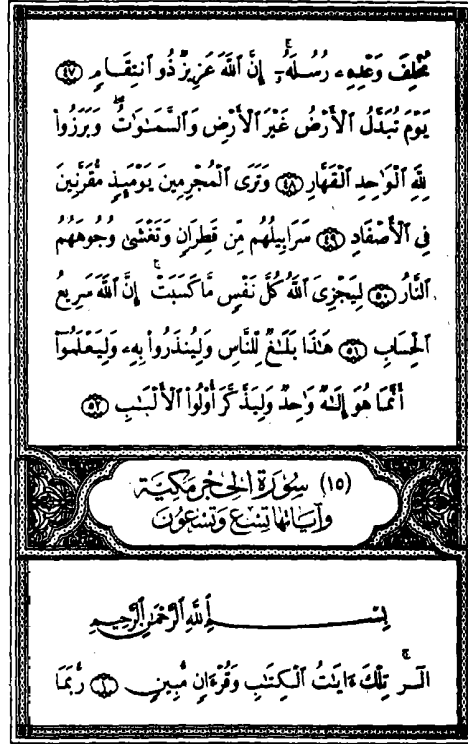 مُخْلِفَ وَعْدِهِۦ رُسُلَهُۥٓ ۚ إِنَّ ٱللَّهَ عَزِيزٌ ذُو ٱنتِقَامٍ ﴿٤٧﴾
يَوْمَ تُبَدَّلُ ٱلْأَرْضُ غَيْرَ ٱلْأَرْضِ وَٱلسَّمَـٰوَٰتُ ۖ وَبَرَزُوا۟
لِلَّهِ ٱلْوَٰحِدِ ٱلْقَهَّارِ ﴿٤٨﴾ وَتَرَى ٱلْمُجْرِمِينَ يَوْمَئِذٍ مُّقَرَّنِينَ
فِى ٱلْأَصْفَادِ ﴿٤٩﴾ سَرَابِيلُهُم مِّن قَطِرَانٍ وَتَغْشَىٰ وُجُوهَهُمُ
ٱلنَّارُ ﴿٥٠﴾ لِيَجْزِىَ ٱللَّهُ كُلَّ نَفْسٍ مَّا كَسَبَتْ ۚ إِنَّ ٱللَّهَ سَرِيعُ
ٱلْحِسَابِ ﴿٥١﴾ هَـٰذَا بَلَـٰغٌ لِّلنَّاسِ وَلِيُنذَرُوا۟ بِهِۦ وَلِيَعْلَمُوٓا۟
أَنَّمَا هُوَ إِلَـٰهٌ وَٰحِدٌ وَلِيَذَّكَّرَ أُو۟لُوا۟ ٱلْأَلْبَـٰبِ ﴿٥٢﴾
(١٥) سُورَةُ الحِجْر مَكِيَّة
وَآيَاتُهَا تِسْعٌ وَتِسْعُونَ
بِسْمِ ٱللَّهِ ٱلرَّحْمَـٰنِ ٱلرَّحِيمِ
الٓر ۚ تِلْكَ ءَايَـٰتُ ٱلْكِتَـٰبِ وَقُرْءَانٍ مُّبِينٍ ﴿١﴾ رُّبَمَا